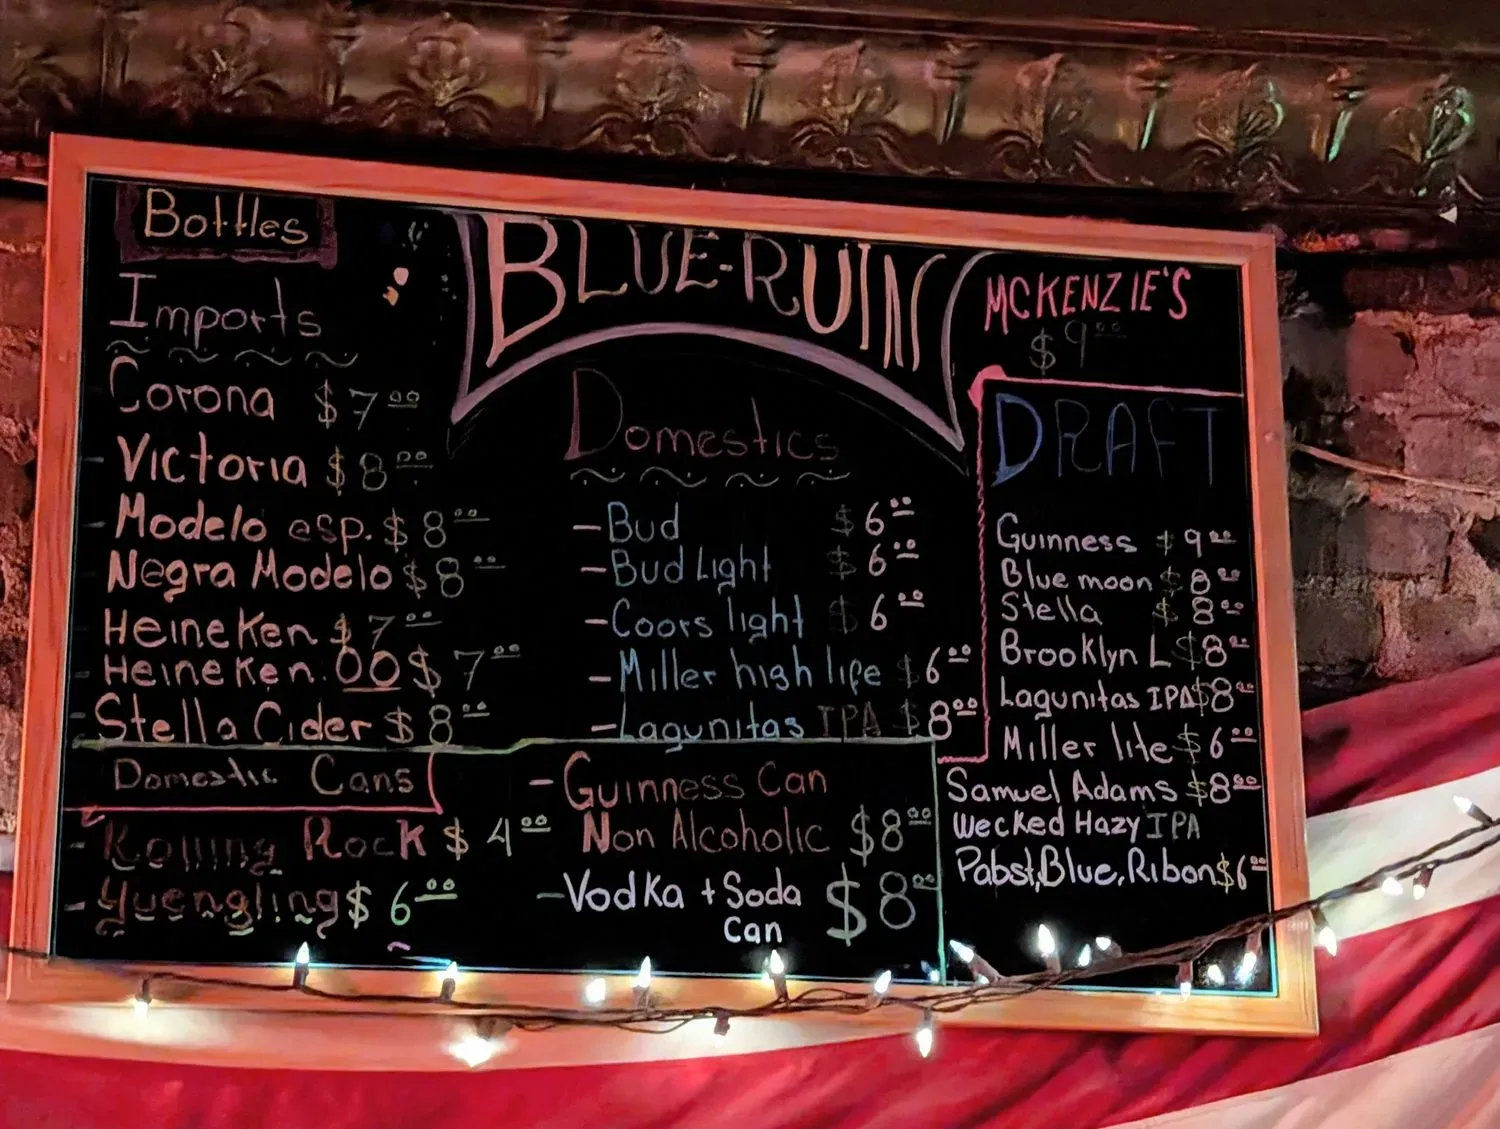 Bottles
Imports
Corona $7.00
- Victoria $8.00
- Modelo esp. $8.00
Negra Modelo $8.00
HeineKen $7.00
HeineKen.00 $7.00
- Stella Cider $8.00
Domestic Cans
- Rolling Rock $4.00
- Yuengling $6.00
BLUE-RUIN
Domestics
- Bud $6.00
- Bud Light $6.00
- Coors light $6.00
- Miller high life $6.00
- Lagunitas IPA $8.00
- Guinness Can
Non Alcoholic $8.00
- Vodka + Soda $8.00
Can
MCKENZIE'S
$9.00
DRAFT
Guinness $9.00
Blue moon $8.00
Stella $8.00
Brooklyn L $8.00
Lagunitas IPA $8.00
Miller lite $6.00
Samuel Adams $8.00
Wecked Hazy IPA
Pabst,Blue,Ribon $6.00